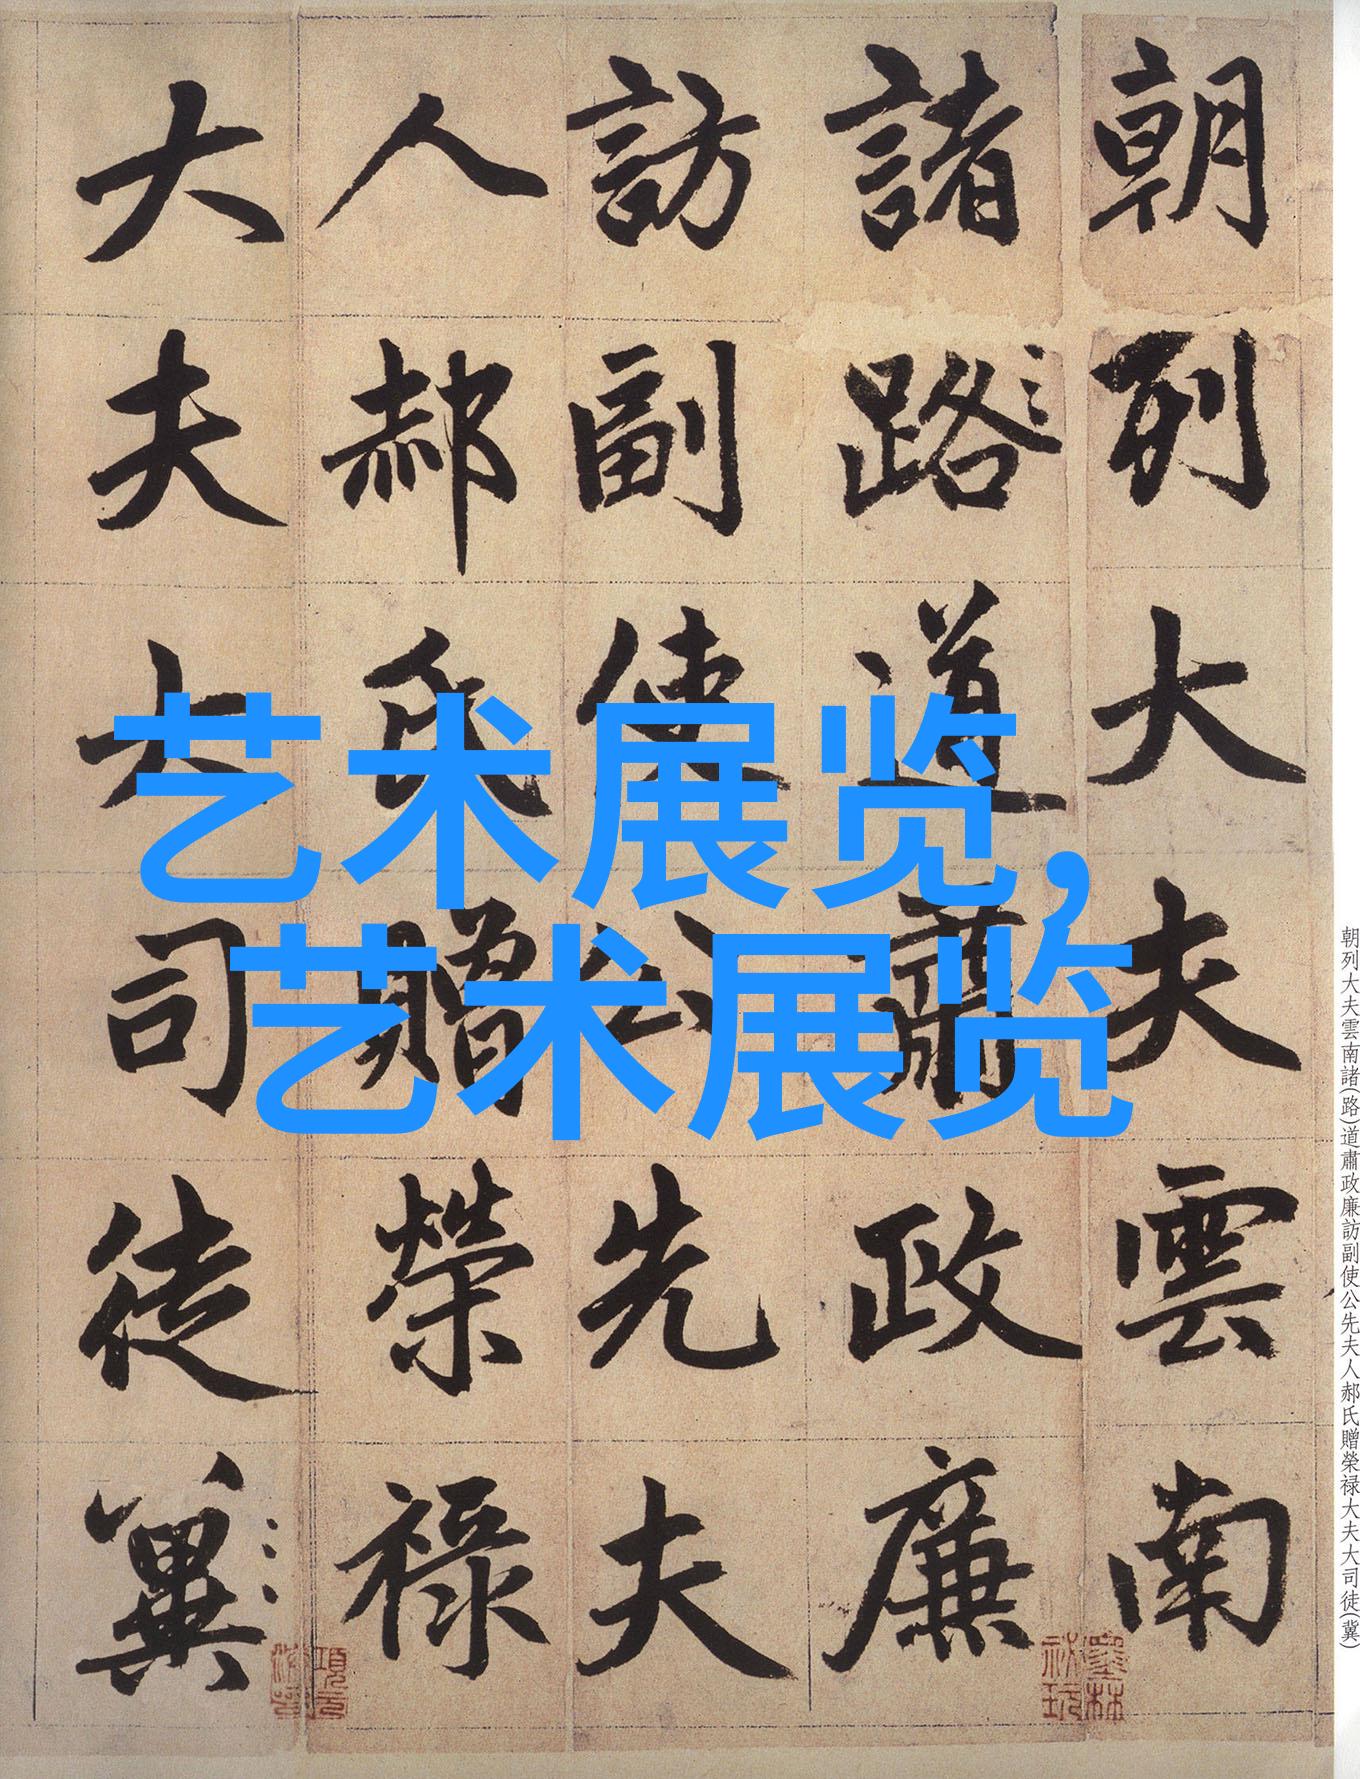 朝列大夫雲南
諸路道肅政廉
訪副使公先夫
人郝氏贈榮祿
大夫大司徒冀
艺术展览,
艺术展览
朝列大夫雲南諸(路)道肅政廉訪副使公先夫人郝氏贈榮禄大夫大司徒(冀)